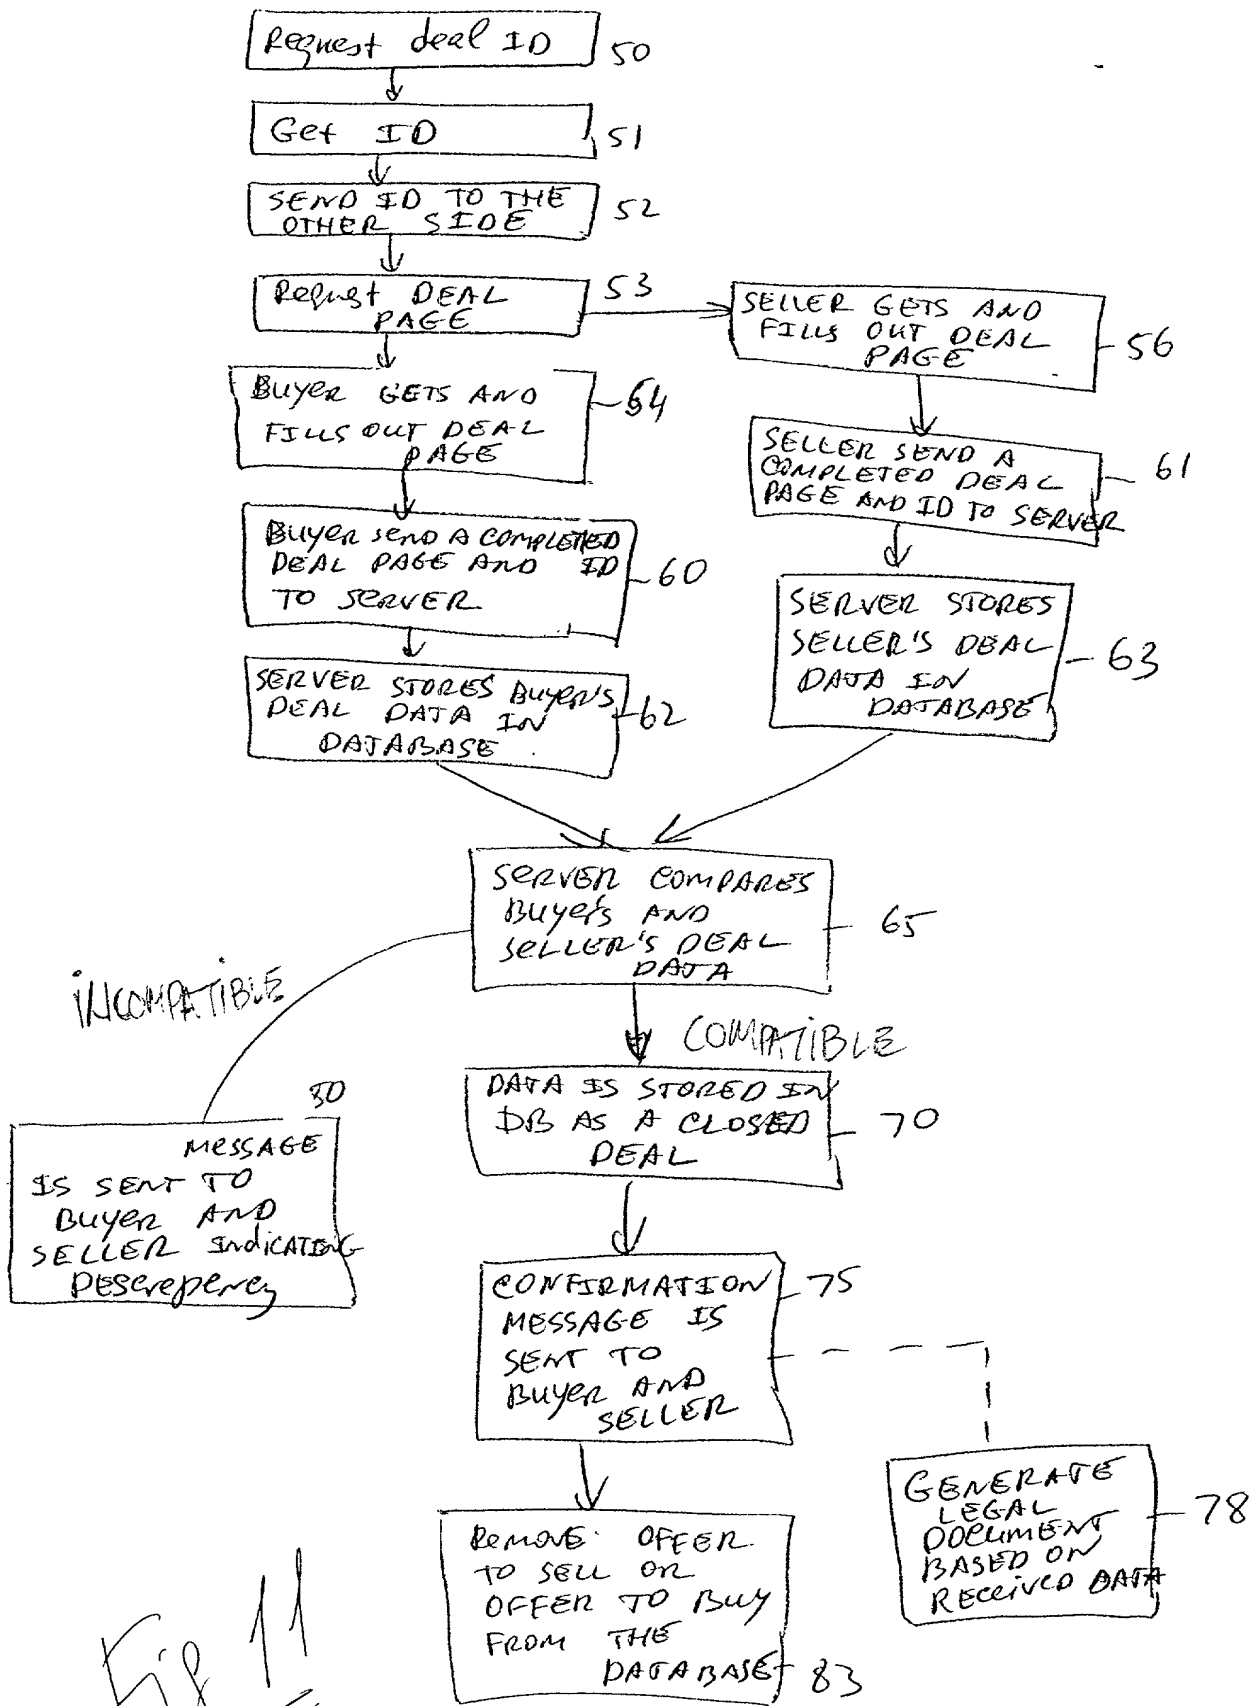 Request deal ID 50
Get ID 51
SEND ID TO THE
OTHER SIDE 52
Request DEAL
PAGE 53
SELLER GETS AND
FILLS OUT DEAL
PAGE 56
BUYER GETS AND
FILLS OUT DEAL
PAGE 54
SELLER SEND A
COMPLETED DEAL
PAGE AND ID TO SERVER 61
BUYER SEND A COMPLETED
DEAL PAGE AND ID
TO SERVER 60
SERVER STORES
SELLER'S DEAL
DATA IN
DATABASE 63
SERVER STORES BUYER'S
DEAL DATA IN
DATABASE 62
SERVER COMPARES
BUYER'S AND
SELLER'S DEAL
DATA 65
INCOMPATIBLE
COMPATIBLE
DATA IS STORED IN
DB AS A CLOSED
DEAL 70
MESSAGE
IS SENT TO
BUYER AND
SELLER INDICATING
DEScrepency
CONFIRMATION
MESSAGE IS
SENT TO
BUYER AND
SELLER 75
GENERATE
LEGAL
DOCUMENT
BASED ON
RECEIVED DATA 78
REMOVE OFFER
TO SELL OR
OFFER TO BUY
FROM THE
DATABASE 83
Fig 11